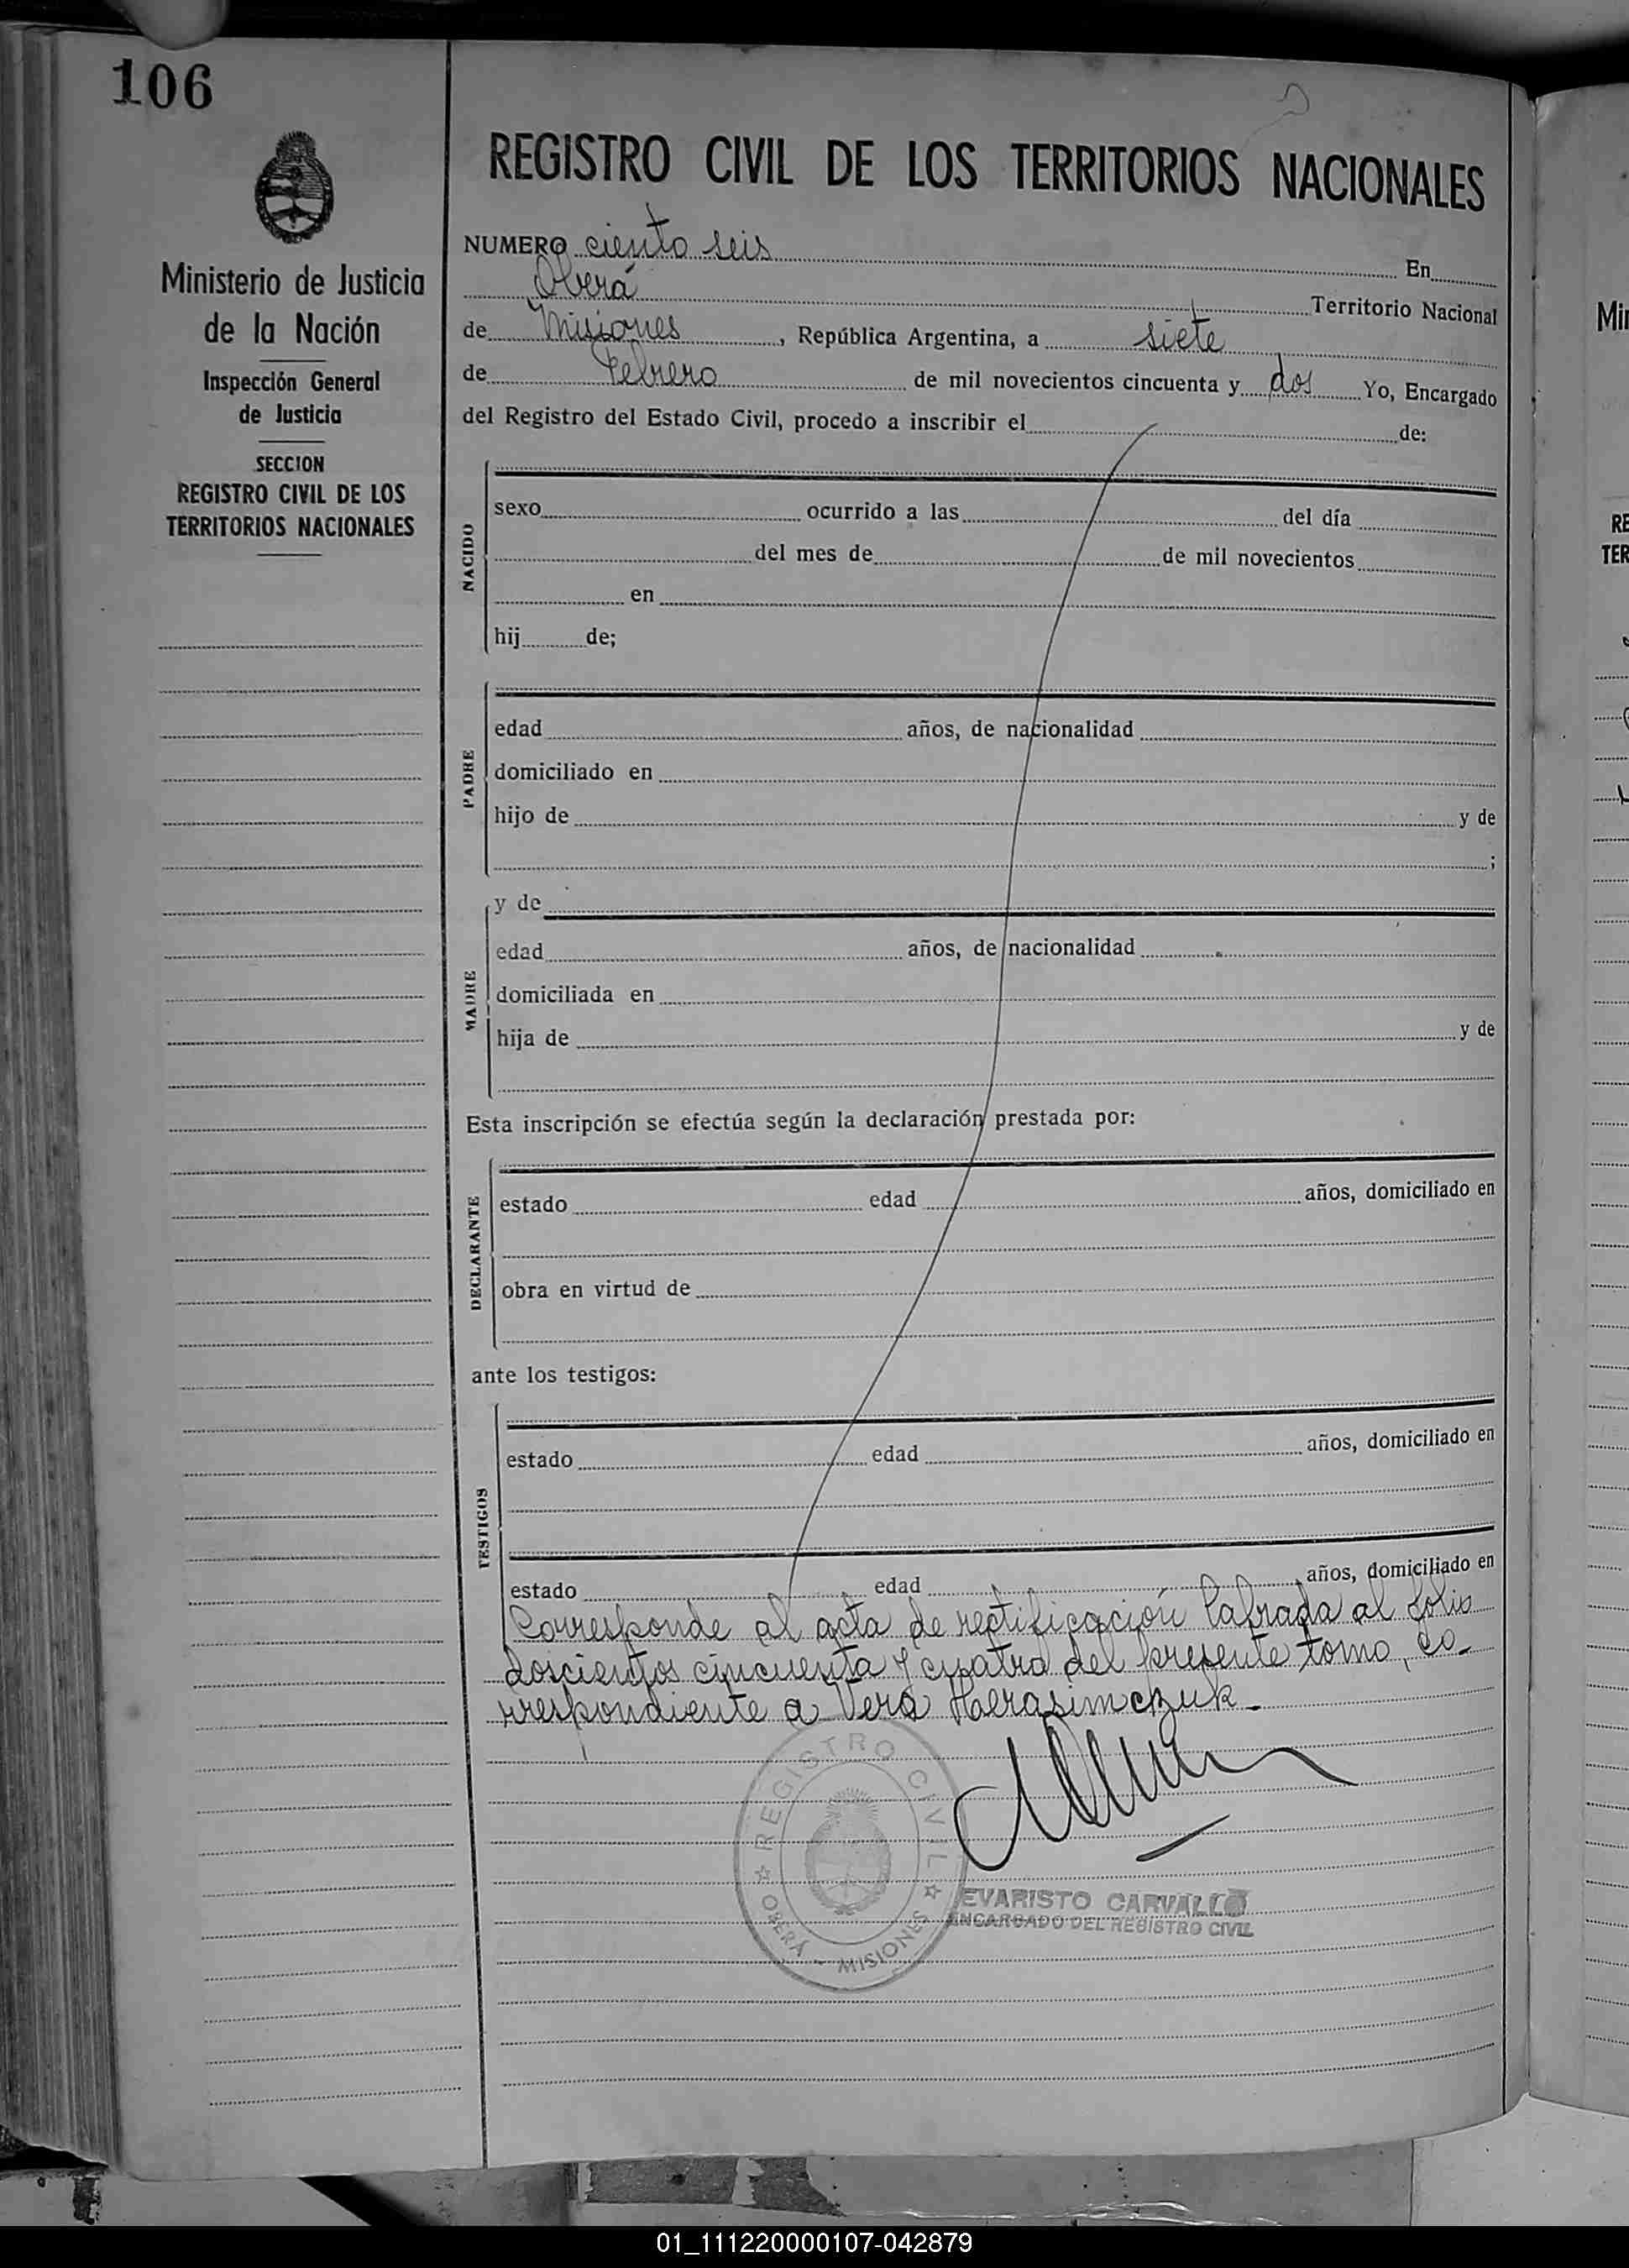 106
Ministerio de Justicia
de la Nación
Inspección General
de Justicia
SECCION
REGISTRO CIVIL DE LOS
TERRITORIOS NACIONALES
REGISTRO CIVIL DE LOS TERRITORIOS NACIONALES
NUMERO ciento seis En
Oberá Territorio Nacional
de Misiones, República Argentina, a siete
de Febrero de mil novecientos cincuenta y dos Yo, Encargado
del Registro del Estado Civil, procedo a inscribir el de:
NACIDO
sexo ocurrido a las del día
del mes de de mil novecientos
en
hij de;
PADRE
edad años, de nacionalidad
domiciliado en
hijo de y de
;
MADRE
y de
edad años, de nacionalidad
domiciliada en
hija de y de
Esta inscripción se efectúa según la declaración prestada por:
DECLARANTE
estado edad años, domiciliado en
obra en virtud de
ante los testigos:
TESTIGOS
estado edad años, domiciliado en
estado edad años, domiciliado en
Corresponde al acta de rectificación labrada al folio
doscientos cincuenta y cuatro del presente tomo, co-
rrespondiente a Vera Herasimczuk.-
REGISTRO CIVIL
OBERÁ - MISIONES
EVARISTO CARVALLO
ENCARGADO DEL REGISTRO CIVIL
Mi
RE
TER
01_111220000107-042879